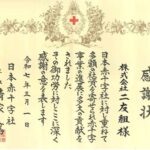 感謝状
株式会社二友組様
日本赤十字社に対し重ねて
多額の経費を寄せられ赤十字
事業の進展に多大の貢献を
されました ここにその御功労に対し深く
感謝の意を表します
令和七年三月一日
日本赤十字社